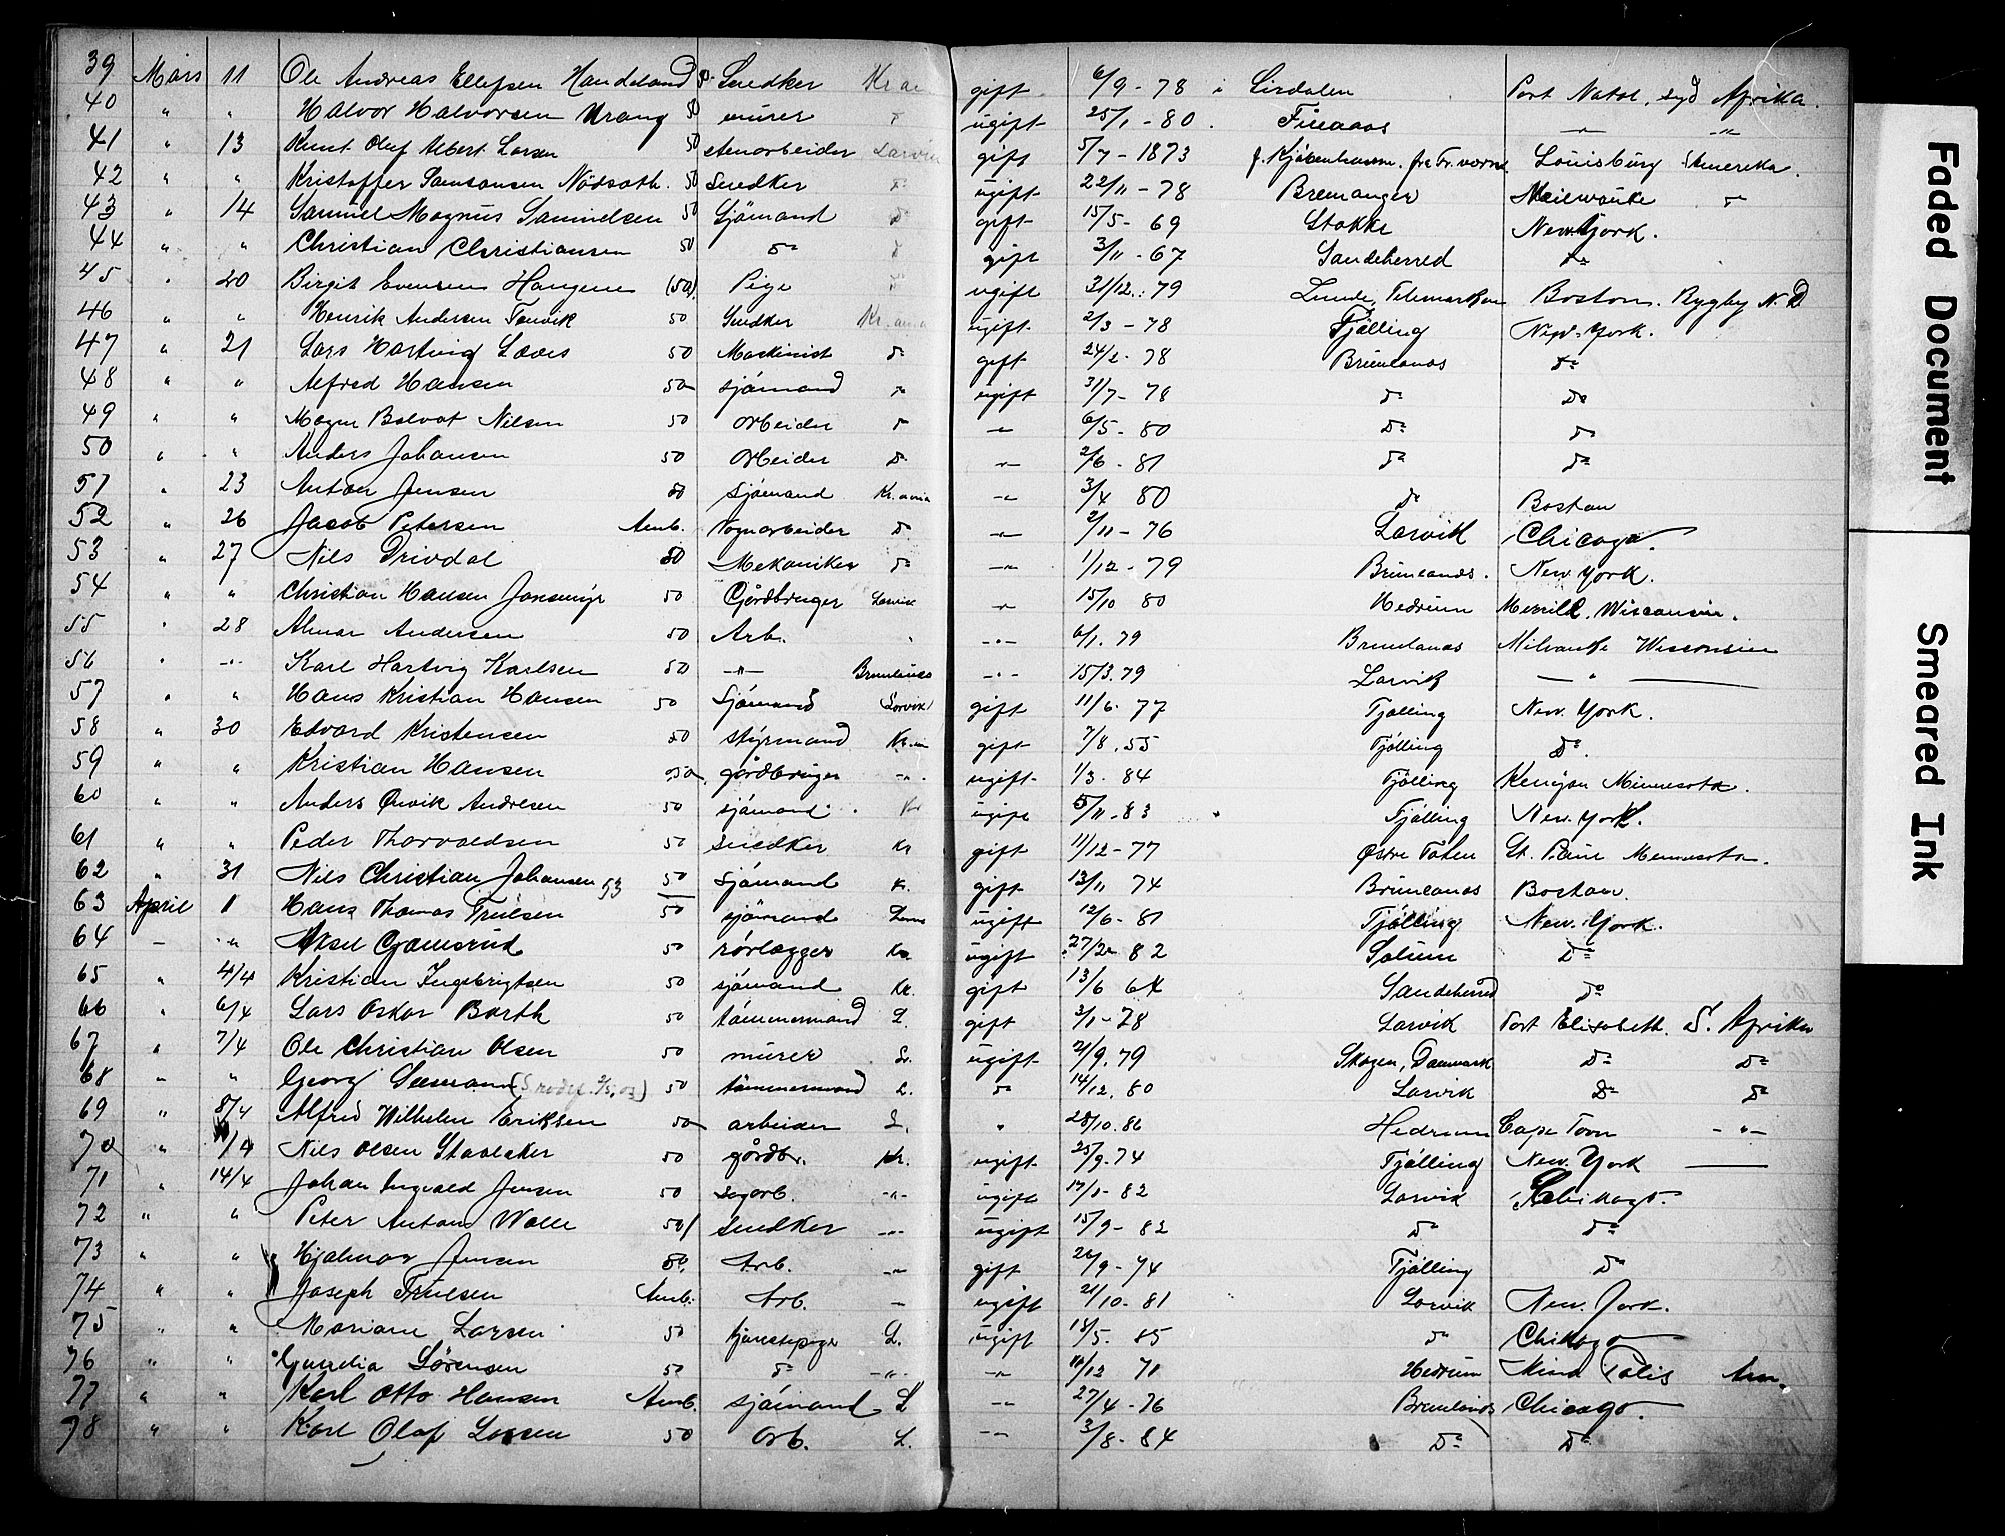 39 Mars 11 Ole Andreas Ellefsen Handeland 50 Snedker Kr.a gift 6/9 - 78 i Sirdalen Port Natal, syd Afrika.
40 " " Halvor Halvorsen Vrang 50 murer " ugift 25/1 - 80. Fineaas " "
41 " 13 Knut Oluf Albert Larsen 50 stenarbeider Larvik gift 5/7 - 1873 f. Kjøbenhavn. Louisburg Amerika.
42 " " Kristoffer Samsonsen Nødseth. 50 Snedker " ugift 22/11 - 78 Bremanger Meilwauke "
43 " 14 Samuel Magnus Samuelsen 50 Sjømand Do gift 15/5 - 69 Stokke New York.
44 " " Christian Christiansen 50 Do " gift 3/11 - 67 Sandeherred Do
45 " 20 Birgit Evensen Haugene (50) Pige " ugift 21/12 : 79 Lunde, Telemarken Boston. Rygby N. D
46 " " Henrik Andersen Tenvik 50 Snedker Kr.ania ugift 2/3 - 78 Tjølling New-York.
47 " 21 Lars Hartvig Laves 50 Maskinist Do gift 24/2 - 78 Brunlanæs Do
48 " " Alfred Hansen 50 sjømand " ugift 31/7 - 78 Do Do
49 " " Magnus Nilsen 50 arbeider " " 6/5 - 80 Do Do
50 " " Anders Johansen 50 Arbeider Do " 2/6 - 81 Do Do
51 " 23 Anton Jensen 50 Sjømand Kr.ania " 3/4 80 Do Boston
52 " 26 Jacob Petersen Amb. Vognarbeider Do " 2/11 - 76 Larvik Chicago.
53 " 27 Nils Drivdal 50 Mekaniker Do " 1/12 - 79 Brunlanæs. New York.
54 " " Christian Hansen Jonsmyr 50 Gårdbruger Larvik " 15/10 80 Hedrum Merrill, Wisconsin.
55 " 28 Almar Andersen 50 Arb. " " 6/1. 79 Brunlanæs Milvauke Wisconsin
56 " " Karl Hartvig Karlsen 50 " Brunlanæs " 15/3. 79 Larvik "
57 " " Hans Kristian Hansen 50 Sjømand Larvik gift 11/6. 77 Tjølling New. York.
58 " 30 Edvard Kristensen 50 styrmand gift 7/8. 55 Tjølling Do.
59 " " Kristian Hansen 50 gårdbruger " ugift 1/3. 84 Tjølling Kenyon Minnesota.
60 " " Anders Ønvik Andresen 50 sjømand. Kr ugift 5/11 - 83 Tjølling New York.
61 " " Peder Thorvaldsen 50 snedker Kr gift 11/12 - 77 Østre Toten St. Paul Mennesota.
62 " 31 Nils Christian Johansen 53 50 Sjømand K. gift 13/11 74 Brunlanæs Boston.
63 April 1 Hans Thomas Trulsen 50 sjømand ugift 12/6 - 81 Tjølling New. York.
64 - " Aksel Gjæmsrud 50 rørlægger Kr. ugift 27/2 82 Solum Do
65 " 4/4 Kristian Ingebrigtsen 50 sjømand Kr. gift 13/6 64 Sandeherred Do
66 " 6/4 Lars Oskar Barth 50 tømmermand L. gift 3/1 - 78 Larvik Port Elisabeth. S. Afrika
67 " 7/4 Ole Christian Olsen 50 murer ugift 21/9. 79 Skagen, Danmark Do Do
68 " " Georg 50 tømmermand L. Do 14/12. 80 Larvik Do Do
69 " 8/4 Alfred Wilhelm Eriksen 50 arbeider L. " 28/10. 86 Hedrum Cape Town "
70 " 1/4 Nils Olsen Staveaker 50 gårdbr. Kr. ugift 25/9 - 74 Tjølling New. York
71 " 14/4 Johan Ingvald Jensen 50 sagarb. " ugift 17/1 - 82 Larvik Chikago.
72 " " Peter Anton Walle 50 snedker " ugift 15/9 - 82 Do Do
73 " " Hjalmar Jensen 50 Arb. " gift 26/9 - 74 Tjølling Do
74 " " Joseph Trulsen Amb. Arb. " ugift 21/10 - 81 Larvik New. York.
75 " " Mariane Larsen 50 tjenestepige L. ugift 18/5. 85 Do Chikago
76 " " Gunelia Sørensen 50 Do " " 10/12 71 Hedrum Am.
77 " " Karl Otto Hansen Amb. sjømand L " 27/4 - 76 Brunlanæs Chicago.
78 " " Karl Olaf Larsen 50 Arb. L. " 3/8 - 84 Do Do
Faded Document
Smeared Ink